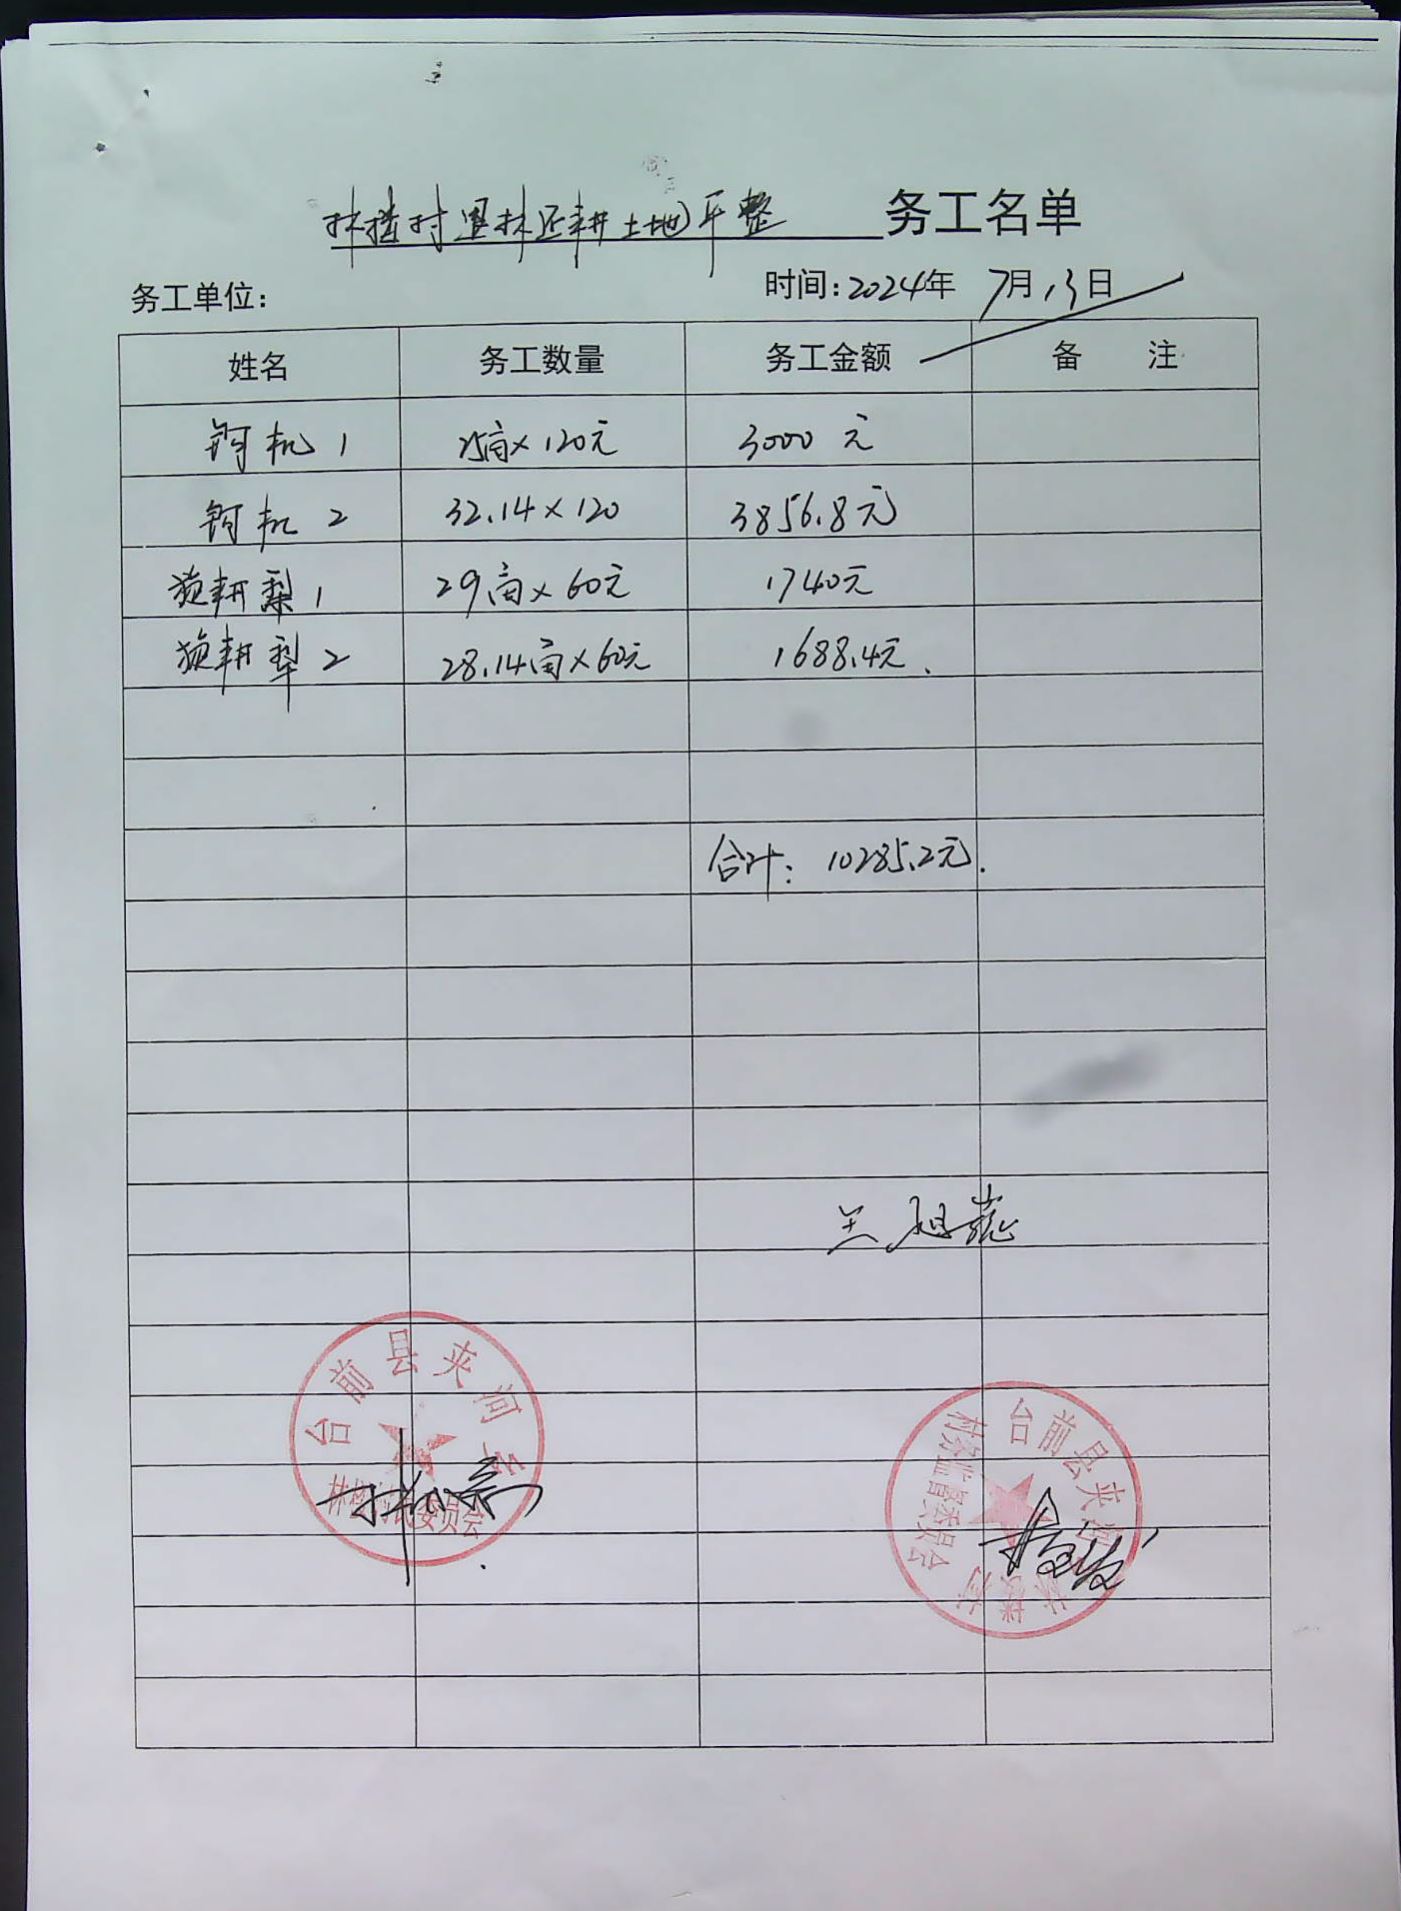 林楼村退林还耕土地平整 务工名单
务工单位： 时间:2024年 7月13日
姓名 务工数量 务工金额 备 注
钶机1 25亩×120元 3000元
钶机2 32.14×120 3856.8元
旋耕犁1 29亩×60元 1740元
旋耕犁2 28.14亩×60元 1688.4元.
合计: 10285.2元.
台前县夹河乡
林楼村民委员会
台前县夹河乡林楼村
村务监督委员会